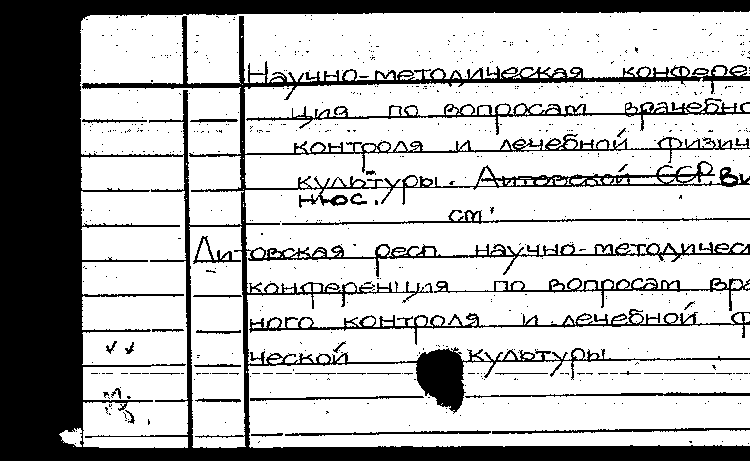 Научно-методическая конферен
ция по вопросам врачебно
контроля и лечебной физич
культуры. Литовской ССР. Ви
нюс.
см.
Литовская респ. научно-методическ
конференция по вопросам вра
ного контроля и лечебной ф
ческой культуры